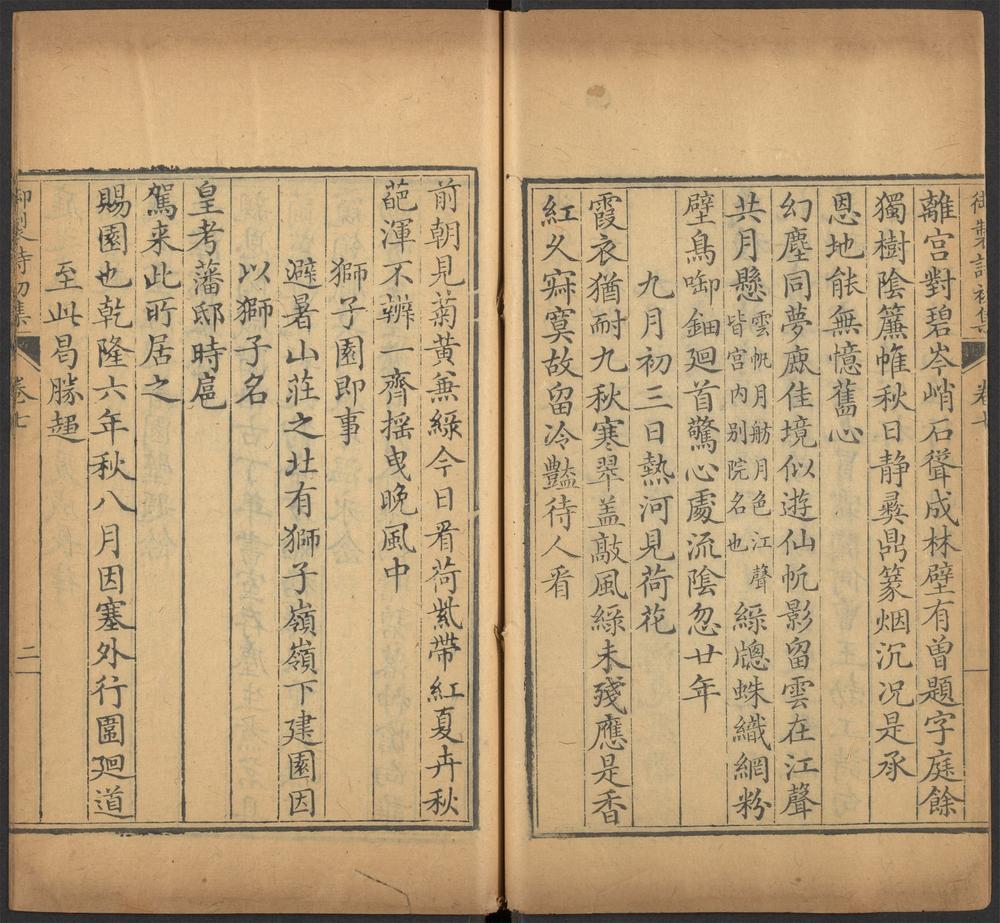 御製詩初集 卷七 一
離宮對碧岑峭石聳成林壁有曽題字庭餘
獨樹陰簾帷秋日静彞鼎篆烟沉况是承
恩地能無憶舊心
幻塵同夢鹿佳境似遊仙㠶影留雲在江聲
共月懸雲帆月舫月色江聲皆宫内别院名也綠牕蛛織網粉
壁鳥啣鈿廻首驚心處流陰忽廿年
九月初三日熱河見荷花
霞衣猶耐九秋寒翠盖敲風綠未殘應是香
紅久寂寞故留冷豔待人看
前朝見菊黄兼綠今日看荷紫帶紅夏卉秋
葩渾不辨一齊摇曳晩風中
獅子園即事
避暑山莊之北有獅子嶺嶺下建園因
以獅子名
皇考藩邸時扈
駕來此所居之
賜園也乾隆六年秋八月因塞外行圍廻道
至此曷勝趨
御製詩初集 卷七 二